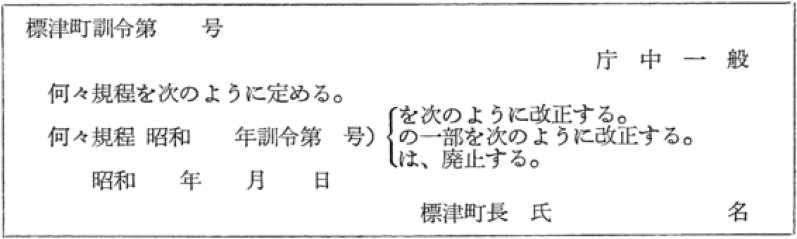 標津町訓令第　　号
庁　中　一　般
何々規程を次のように定める。
何々規程 昭和　　年訓令第　号）
を次のように改正する。
の一部を次のように改正する。
は、廃止する。
昭和　　年　　月　　日
標津町長　氏　　　　　　　　名